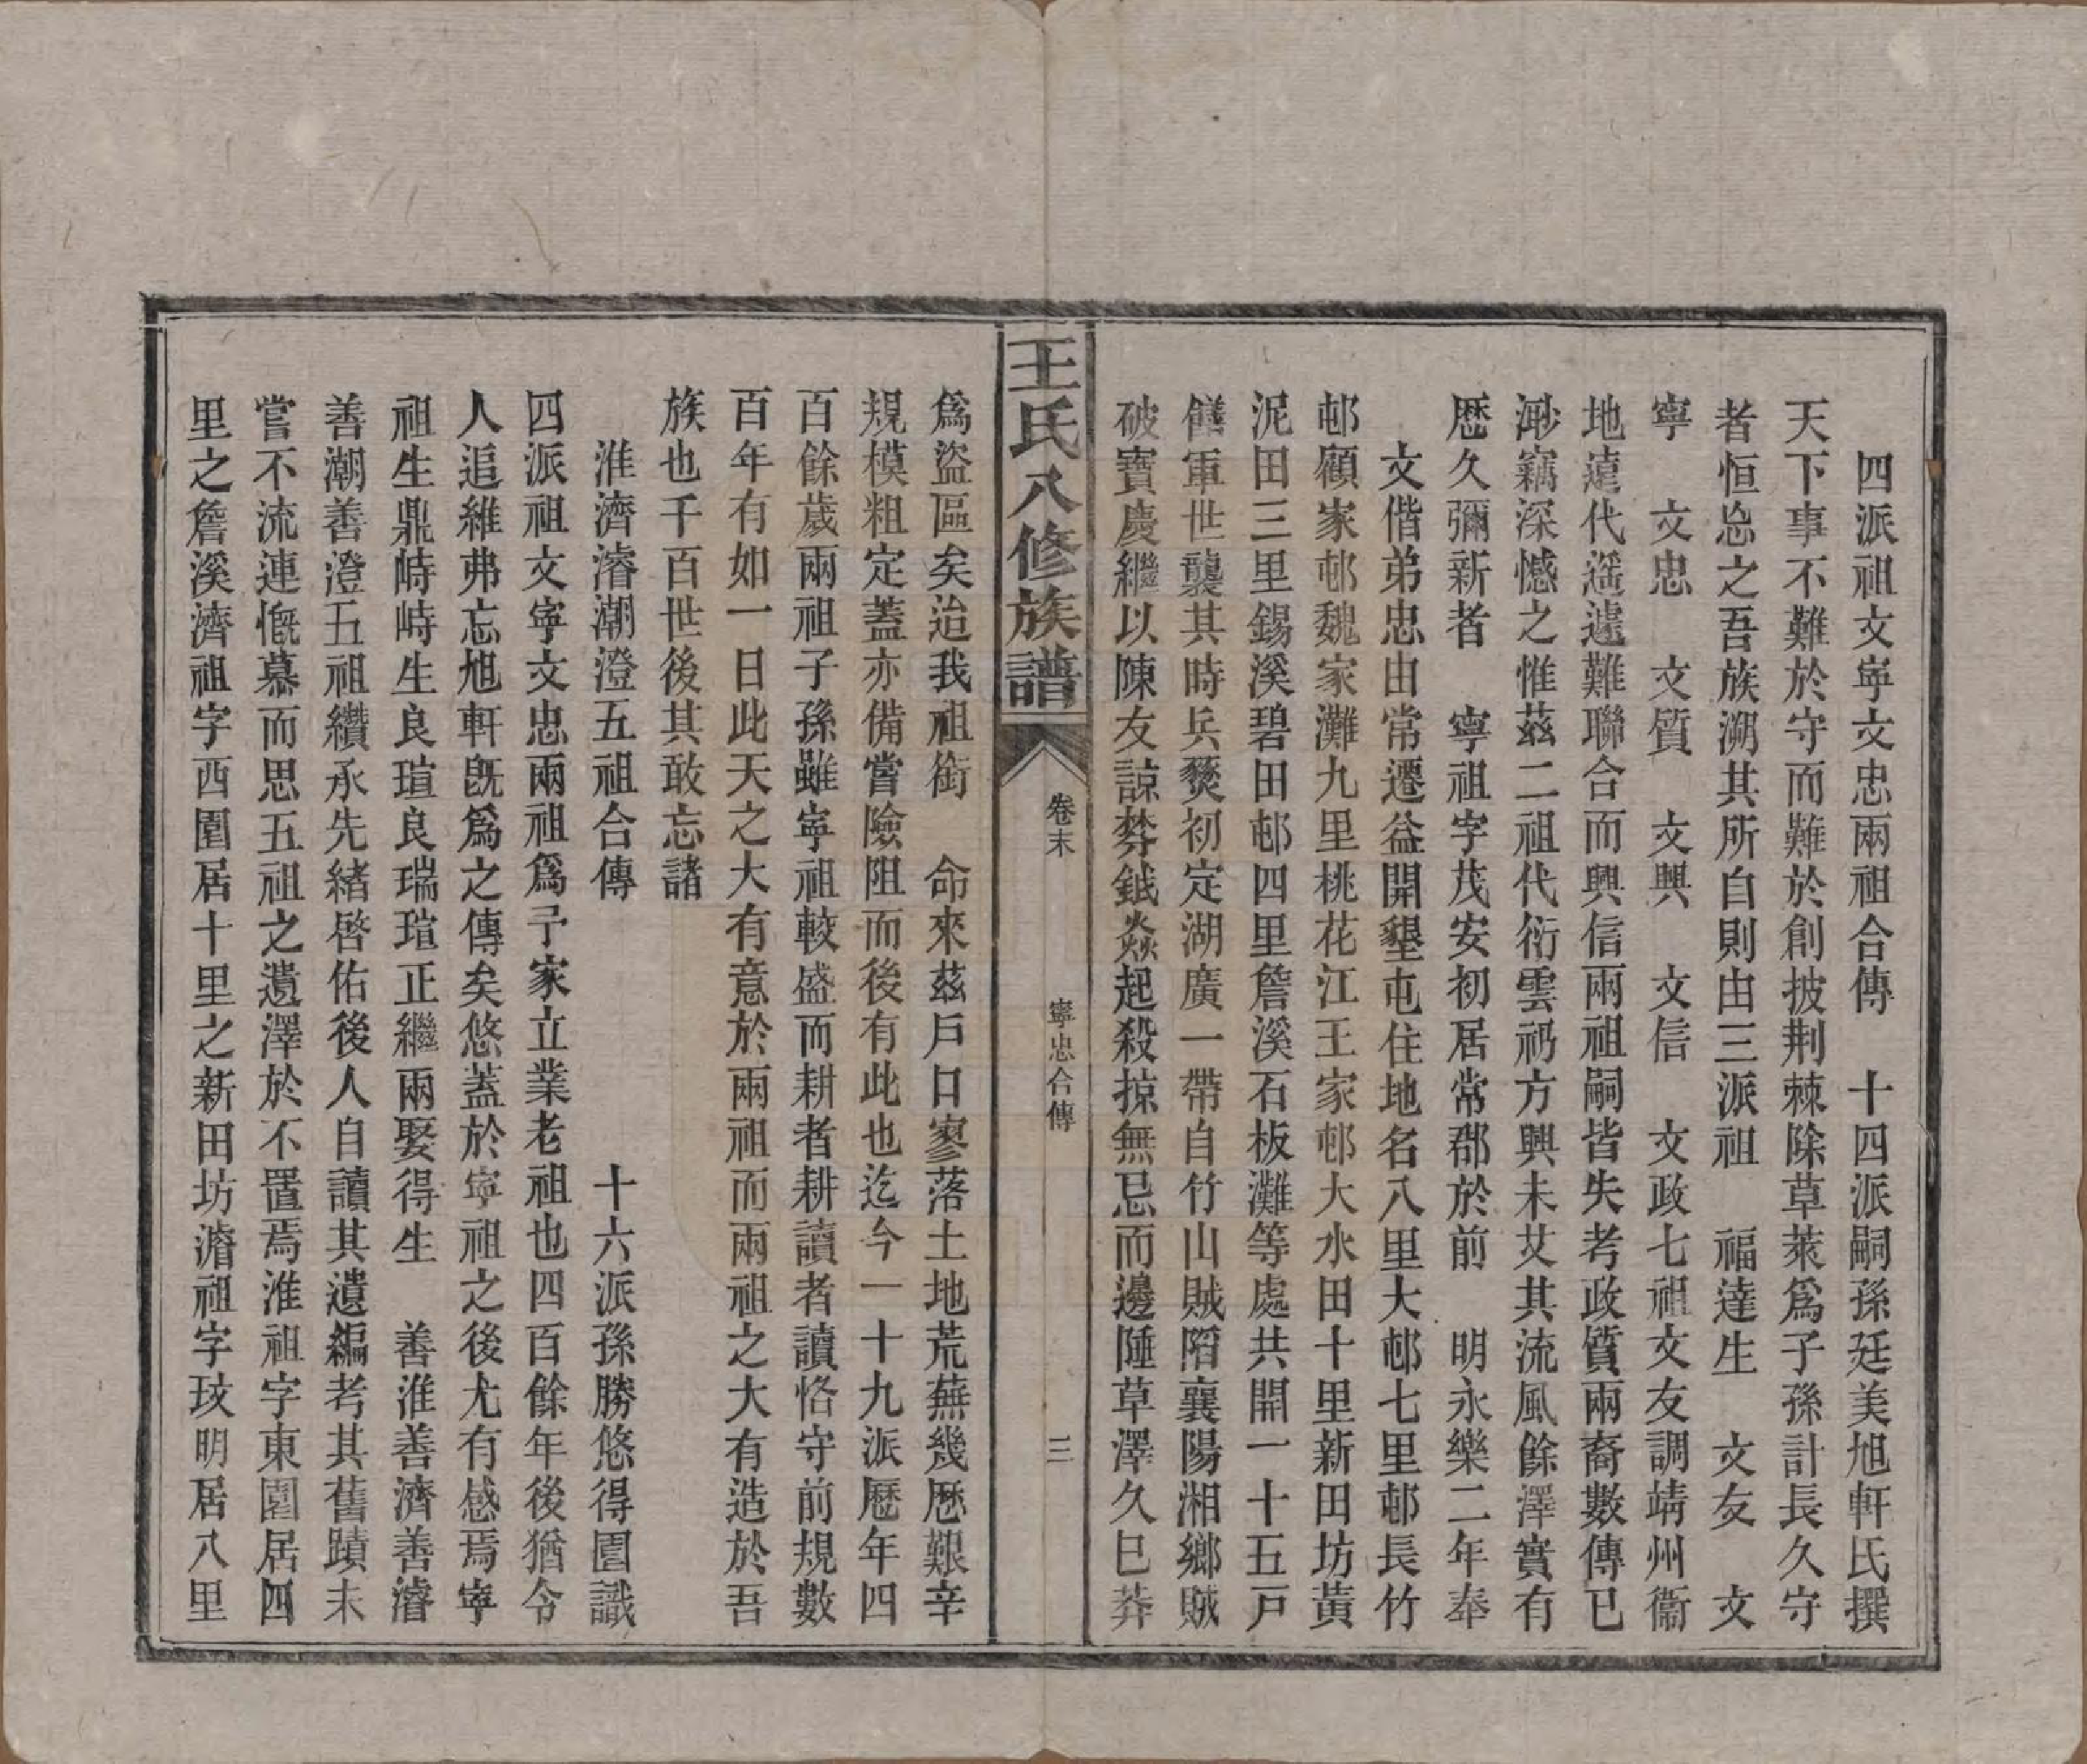 四派祖文寧文忠兩祖合傳　十四派嗣孫廷美旭軒氏撰
天下事不難於守而難於創披荆棘除草萊爲子孫計長久守
者恒忩之吾族溯其所自則由三派祖　福達生　文友　文
寧　文忠　文質　文興　文信　文政七祖文友調靖州衞
地遠代遥遽難聯合而興信兩祖嗣皆失考政質兩裔數傳已
渺竊深憾之惟茲二祖代衍雲礽方興未艾其流風餘澤實有
歷久彌新者　寧祖字茂安初居常郡於前　明永樂二年奉
文偕弟忠由常遷益開墾屯住地名八里大邨七里邨長竹
邨顧家邨魏家灘九里桃花江王家邨大水田十里新田坊黃
泥田三里錫溪碧田邨四里詹溪石板灘等處共開一十五戸
饍軍世襲其時兵燹初定湖廣一帶自竹山賊陷襄陽湘鄉賊
破寶慶繼以陳友諒棼鉞猋起殺掠無忌而邊陲草澤久已莽
王氏八修族譜
卷末
寧忠合傳
三
爲盜區矣迨我祖銜　命來茲戸口寥落土地荒蕪幾歷艱辛
規模粗定蓋亦備嘗險阻而後有此也迄今一十九派歷年四
百餘歲兩祖子孫雖寧祖較盛而耕者耕讀者讀恪守前規數
百年有如一日此天之大有意於兩祖而兩祖之大有造於吾
族也千百世後其敢忘諸
淮濟濬潮澄五祖合傳　十六派孫勝悠得園識
四派祖文寧文忠兩祖爲予家立業老祖也四百餘年後猶令
人追維弗忘旭軒旣爲之傳矣悠蓋於寧祖之後尤有感焉寧
祖生鼎峙峙生良瑄良瑞瑄正繼兩娶得生　善淮善濟善濬
善潮善澄五祖纘承先緒啓佑後人自讀其遺編考其舊蹟未
嘗不流連慨慕而思五祖之遺澤於不置焉淮祖字東園居四
里之詹溪濟祖字西園居十里之新田坊濬祖字玟明居八里